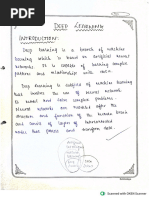 DEEP LEARNING
INTRODUCTION:
Deep learning is a branch of machine
learning which is based on artificial neural
networks. It is capable of learning complex
patterns and relationship with data.
Deep learning is subset of machine learning
that involves the use of neural network
to model and solve complex problems.
Neural networks are modeled after the
structure and function of the human brain
and consist of layer of interconnected
nodes that process and transform data.
Scanned with OKEN Scanner